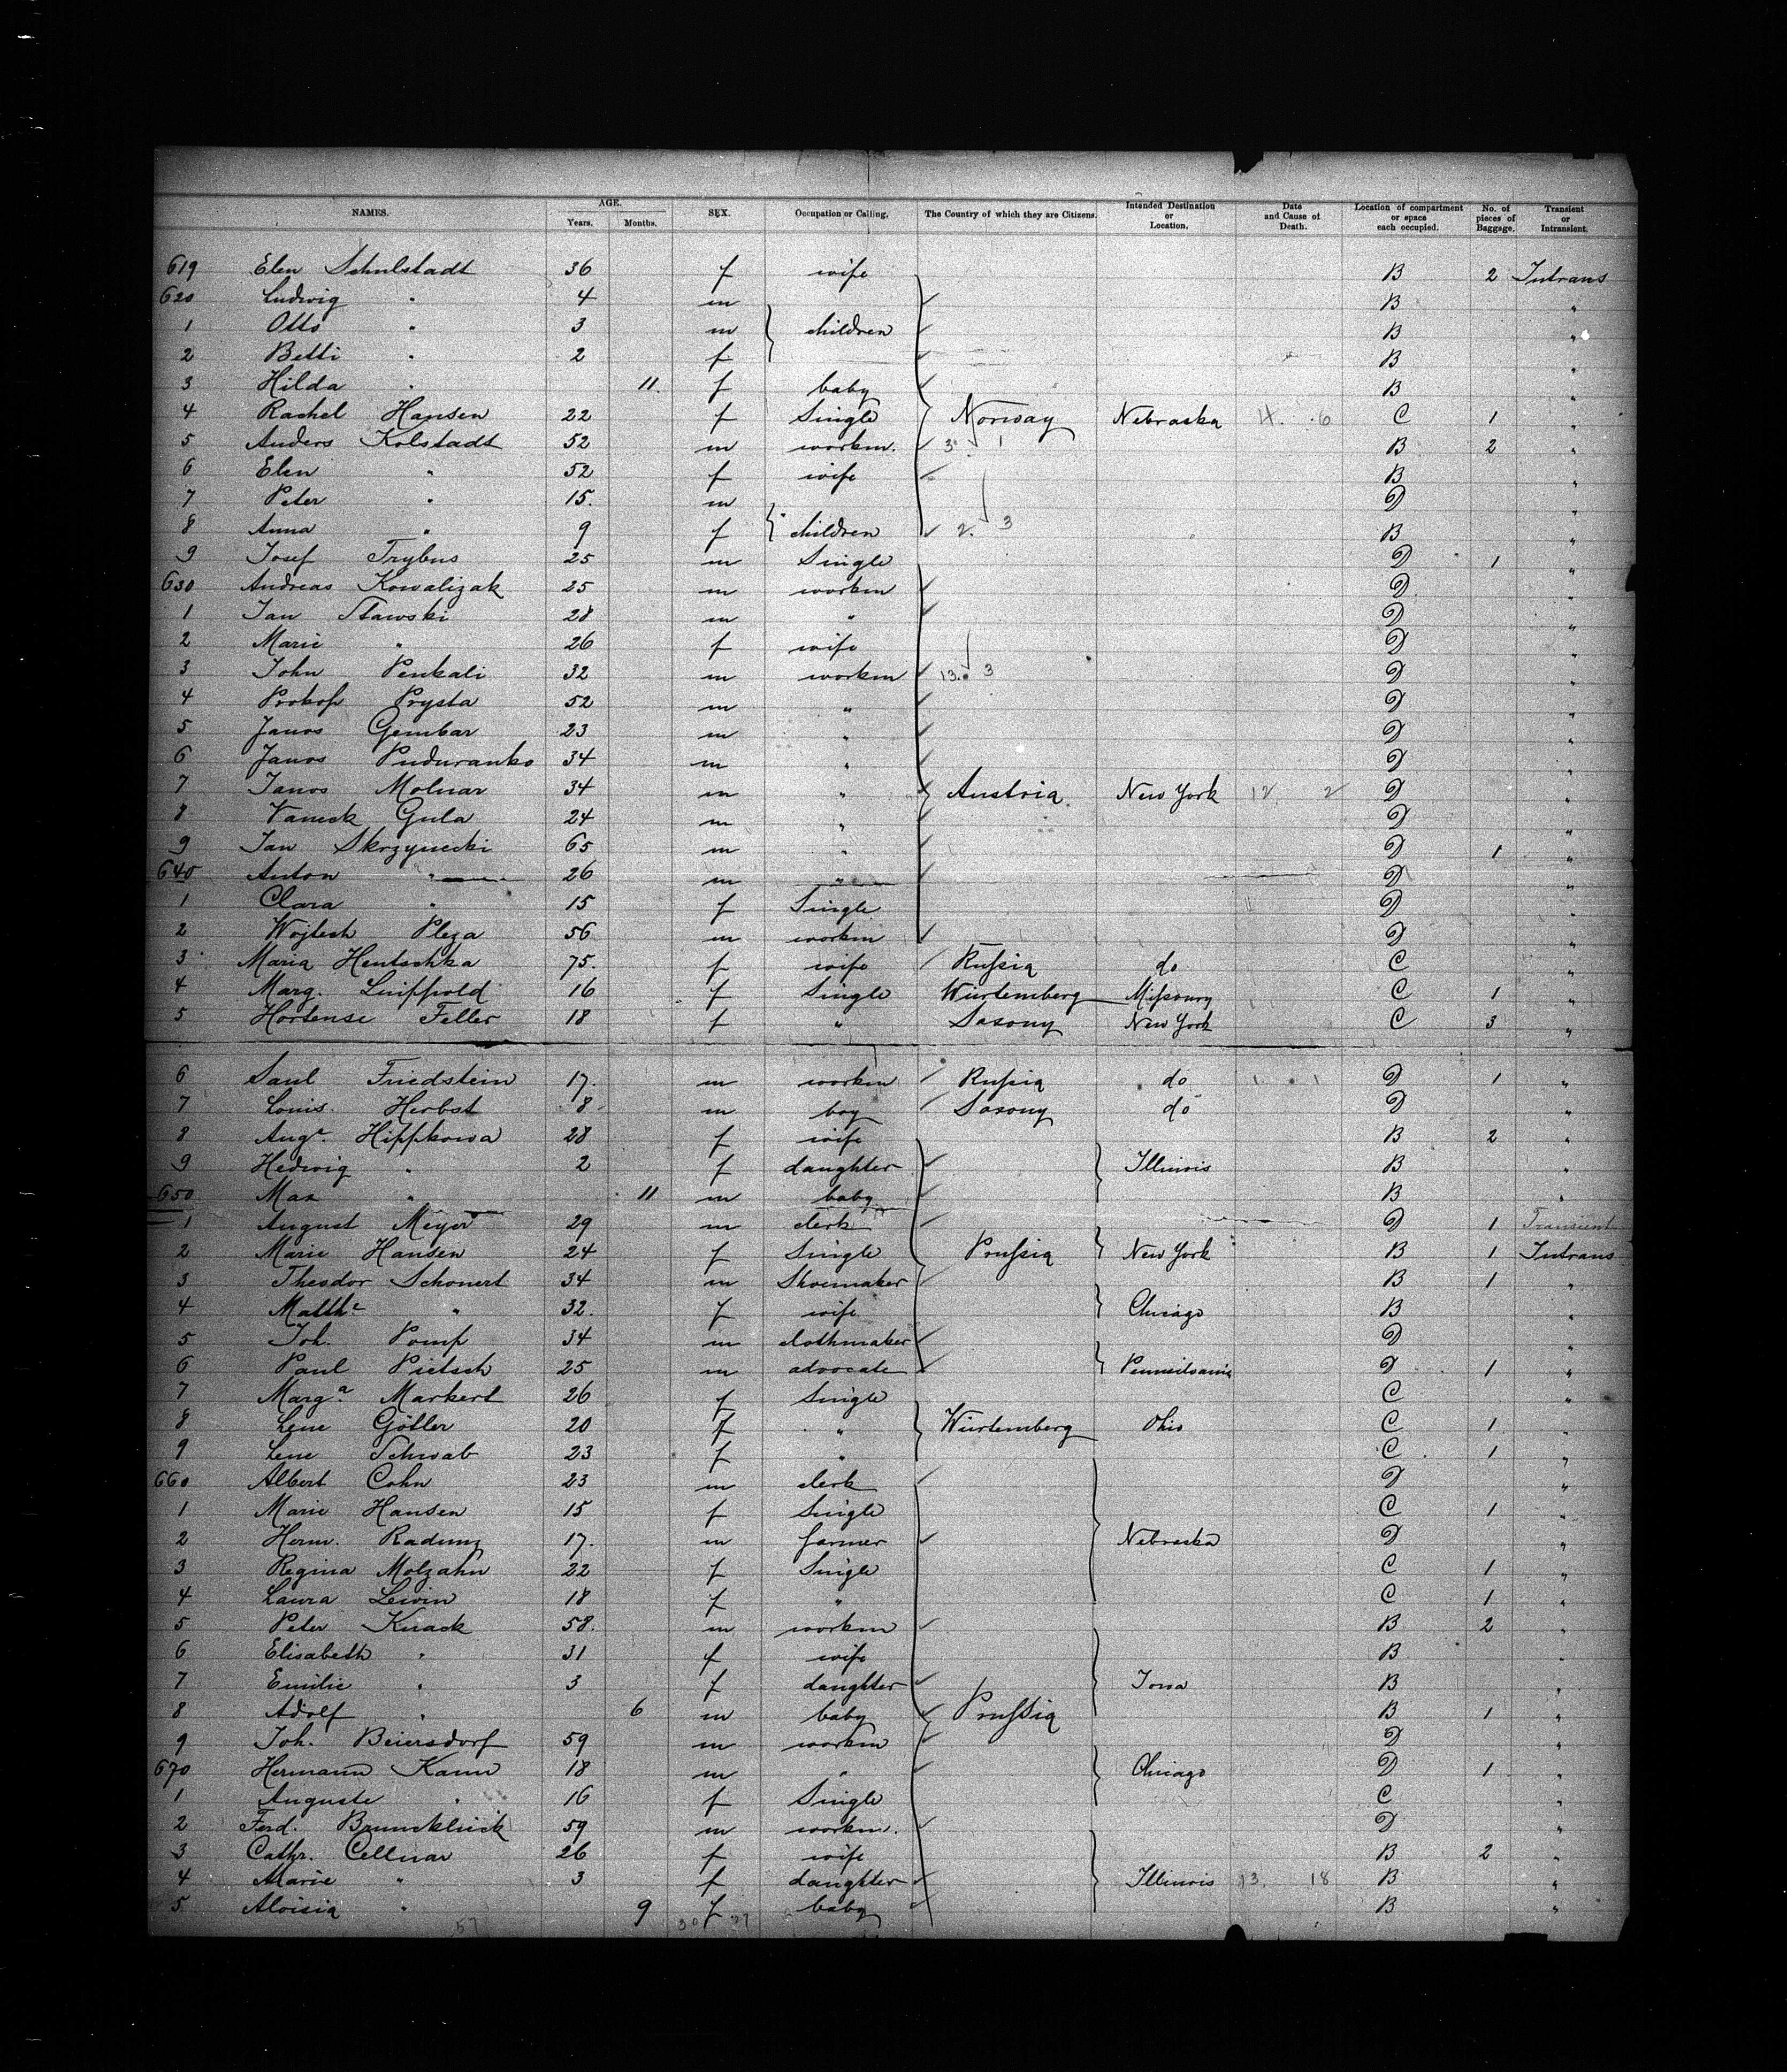 NAMES. AGE. Years. Months. SEX. Occupation or Calling. The Country of which they are Citizens. Intended Destination or Location. Date and Cause of Death. Location of compartment or space each occupied. No. of pieces of Baggage. Transient or Intransient.
619 Elen Schulstadt 36 f wife B 2 Intrans
620 Ludwig " 4 m B "
1 Otto " 3 m children B "
2 Betti " 2 f B "
3 Hilda " 11. f baby B "
4 Rachel Hansen 22 f Single Norway Nebraska 4. 6 C 1 "
5 Anders Kolstadt 52 m workm. 3 1 B 2 "
6 Elen " 52 f wife B "
7 Peter " 15. m D "
8 Anna " 9 f children 2. 3 B "
9 Josef Trybus 25 m Single D 1 "
630 Andreas Kowalizak 25 m workm D "
1 Jan Stawski 28 m " D "
2 Marie " 26 f wife D "
3 John Penkali 32 m workm 13. 3 D "
4 Prokop Prysta 52 m " D "
5 Janos Gembar 23 m " D "
6 Janos Puduranko 34 m " D "
7 Janos Molnar 34 m " Austria New York 12 2 D "
8 Gula 24 m " D "
9 Jan Skrzynecki 65 m " D 1 "
640 Anton " 26 m " D "
1 Clara " 15 f Single D "
2 Wojtech Pleza 56 m workm D "
3 Maria Hentschka 75. f wife Rußia do C "
4 Marg. Luippold 16 f Single Würtemberg Mißoury C 1 "
5 Hortense Feller 18 f " Saxony New York C 3 "
6 Saul Friedstein 17. m workm Rußia do 1 1 D 1 "
7 Louis Herbst 8 m boy Saxony do D "
8 Auga. Hippkowa 28 f wife B 2 "
9 Hedwig " 2 f daughter Illinois B "
650 Max " 11 m baby B "
1 August Meyer 29 m clerk D 1 Transient
2 Marie Hansen 24 f Single Prußia New York B 1 Intrans
3 Theodor Schonert 34 m Shoemaker B 1 "
4 Mathe " 32. f wife Chicago B
5 Joh. Pomp 34 m clothmaker D "
6 Paul Pietsch 25 m advocate Pennsilvania D 1 "
7 Marga. Markert 26 f Single C "
8 Lene Götler 20 f " Würtemberg Ohio C 1 "
9 Lene Schwab 23 f " C 1 "
660 Albert Cohn 23 m clerk D "
1 Marie Hansen 15 f Single C 1 "
2 Herm. Radunz 17. m farmer Nebraska D "
3 Regina Molzahn 22 f Single C 1 "
4 Laura Lewin 18 f " C 1 "
5 Peter Knack 58. m workm B 2 "
6 Elisabeth " 31 f wife B "
7 Emilie " 3 f daughter Iowa B "
8 Adolf " 6 m baby Prußia B 1 "
9 Joh. Beiersdorf 59 m workm D "
670 Hermann Kann 18 m " Chicago D 1 "
1 Auguste " 16 f Single C "
2 Ferd. 59 m workm. D "
3 Cathr. Cellnar 26 f wife B 2 "
4 Marie " 3 f daughter Illinois 13. 18 B "
5 Aloisia " 9 f baby B "
57 30 27